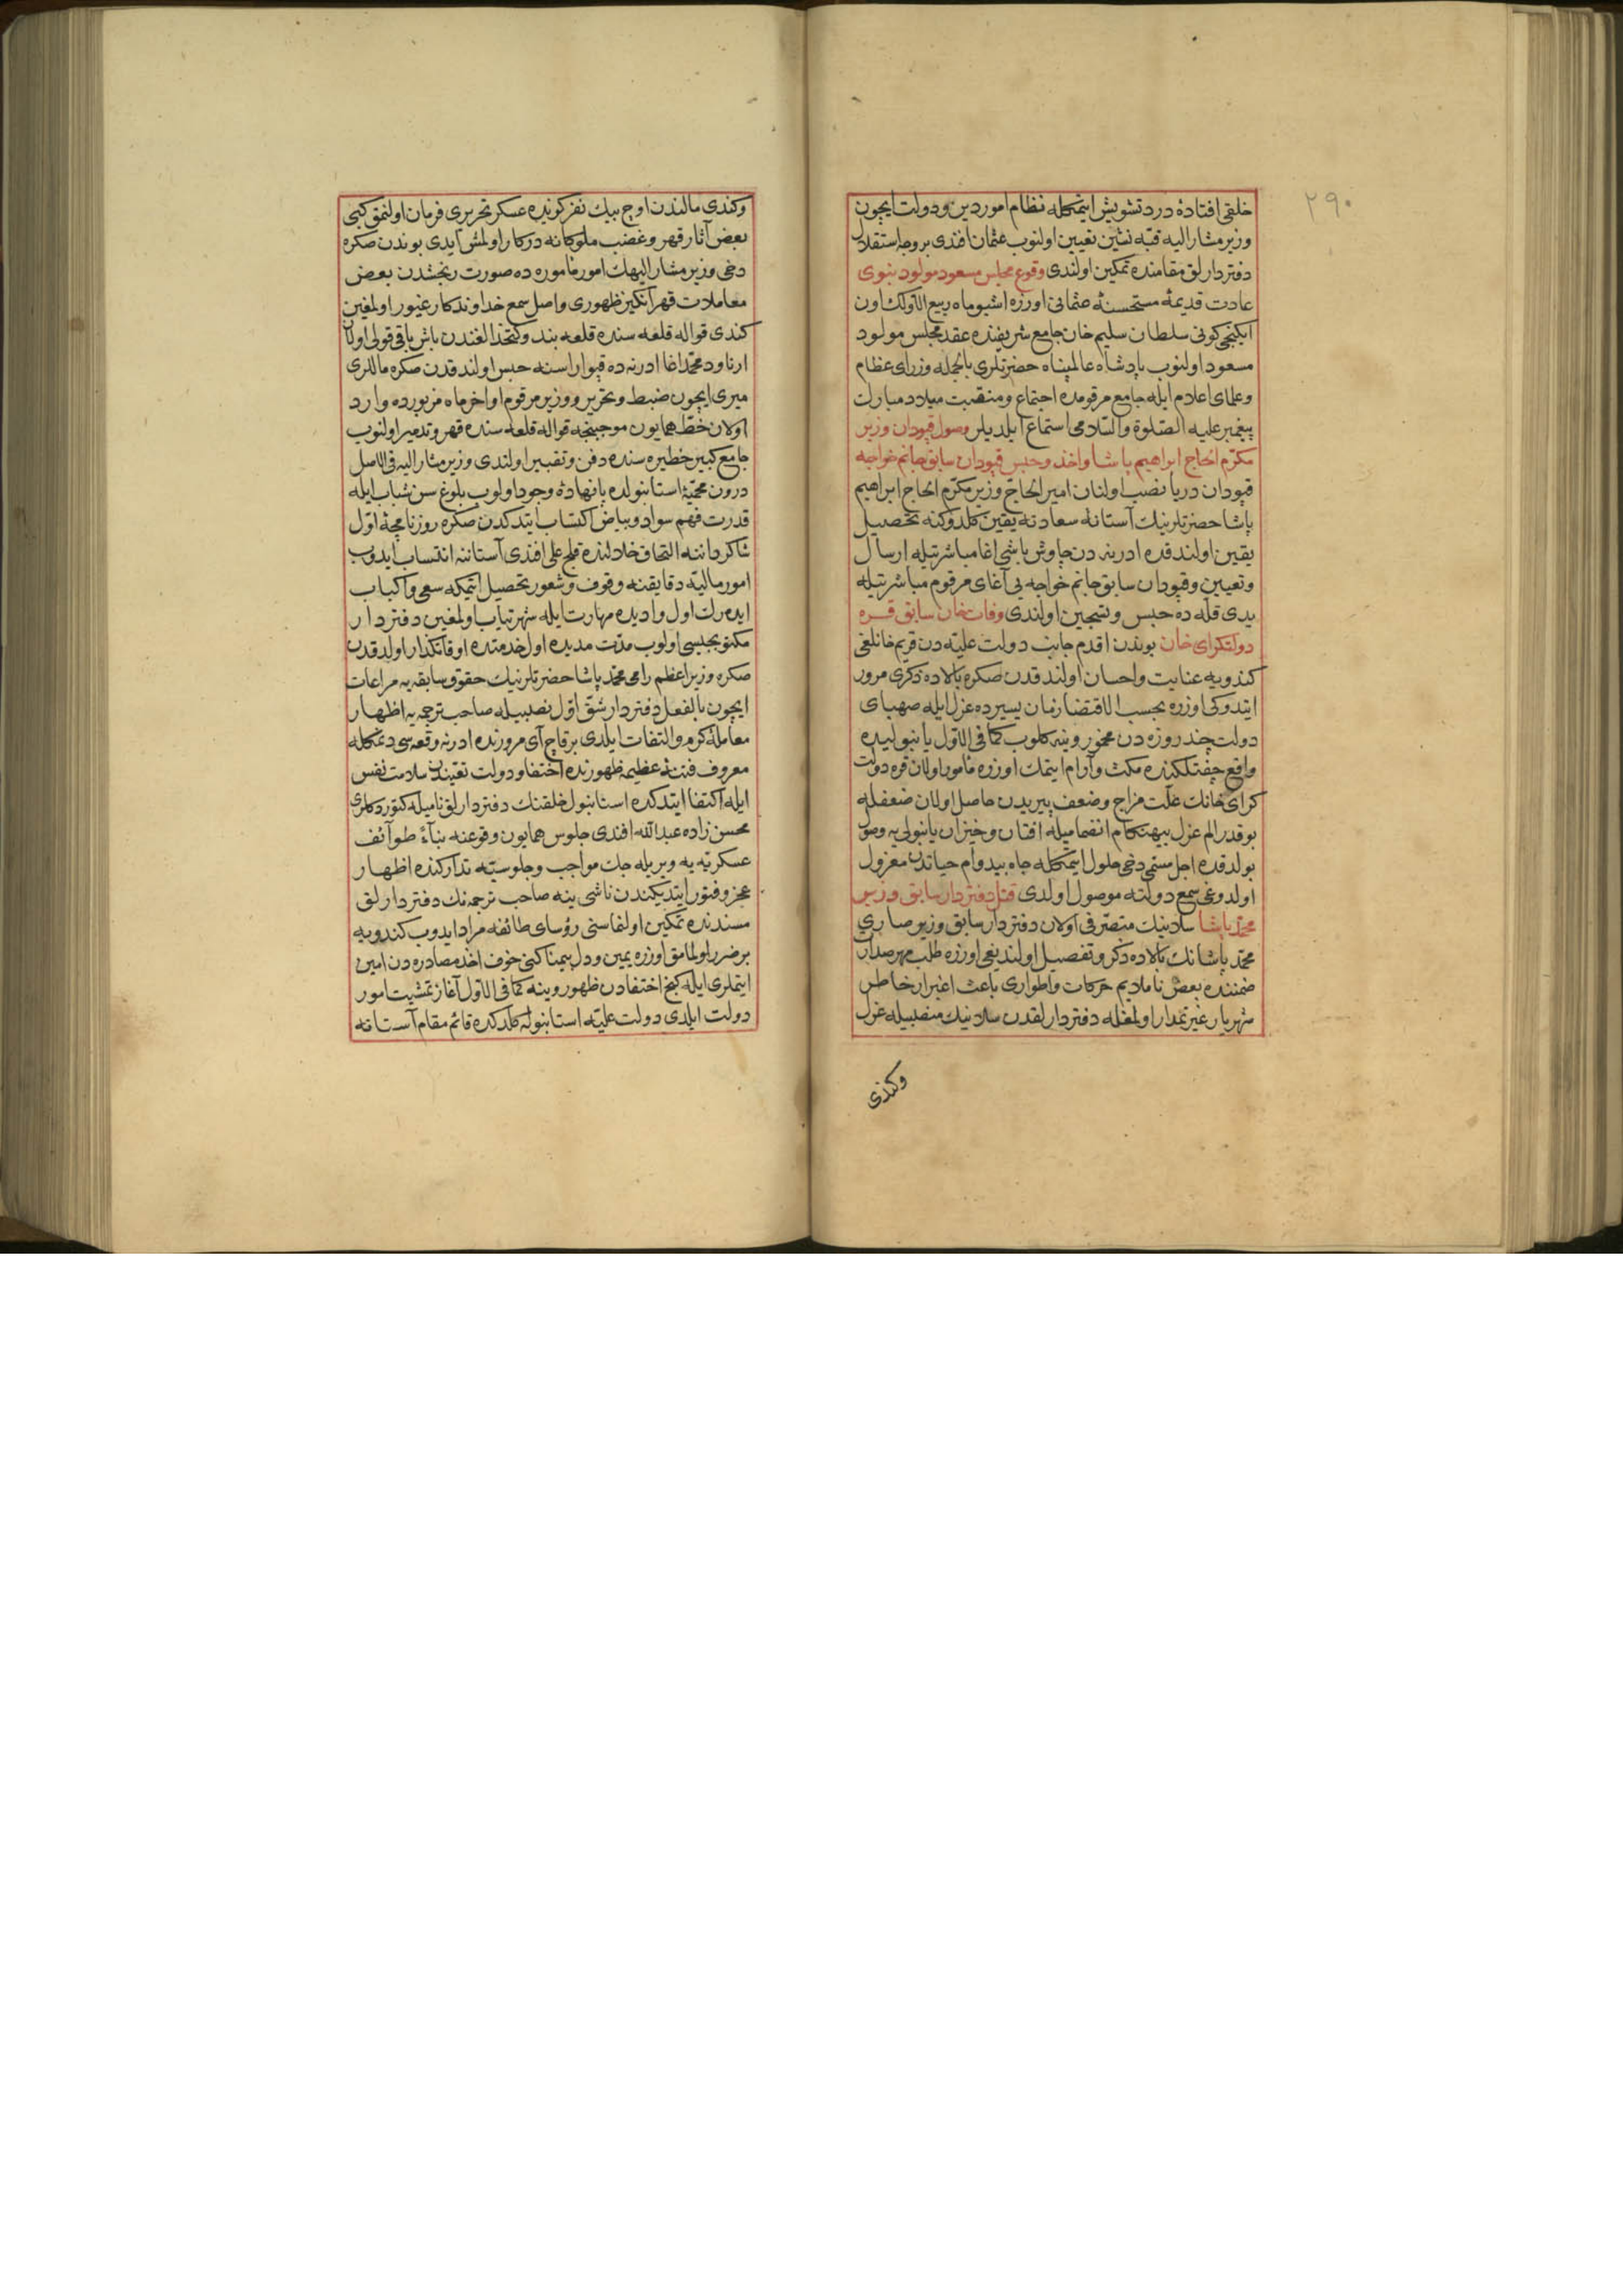 ٢٩٠
خلقی افتادهٔ درد تشویش ایتمكله نظام امور دین و دولت ایچون
وزیر مشار الیه قبه نشین تعیین اولنوب عثمان افندی بر وجه استقلال
دفتردارلق مقامنده تمكین اولندی وقوع مجلس مسعود مولود نبوی
عادت قدیمهٔ مستحسنهٔ عثمانی اوزره اشبو ماه ربیع الاولك اون
ایكنجی كونی سلطان سلیم خان جامع شریفنده عقد مجلس مولود
مسعود اولنوب پادشاه عالمپناه حضرتلری بالجمله وزرای عظام
وعلمای اعلام ایله جامع مرقومده اجتماع ومنقبت میلاد مبارك
پیغمبر علیه الصلوة والسلامی استماع ایلدیلر وصول قپودان وزیر
مكرم الحاج ابراهیم پاشا واخذ وحبس قپودان سابق جانم خواجه
قپودان دریا نصب اولنان امیر الحاج وزیر مكرم الحاج ابراهیم
پاشا حضرتلرینك آستانه سعادته یقین كلدوكنه تحصیل
یقین اولندقده ادرنه دن چاوش باشی اغا مباشرتیله ارسال
وتعیین وقپودان سابق جانم خواجه یی آغای مرقوم مباشرتیله
یدی قله ده حبس وتسجین اولندی وفات خان سابق قره
دولتكرای خان بوندن اقدم جانب دولت علیه دن قریم خانلغی
كندویه عنایت واحسان اولندقدن صكره بالاده ذكری مرور
ایتدوكی اوزره بحسب الاقتضا زمان یسیرده عزل ایله صهبای
دولت چند روزه دن مخمور وینه كلوب كما فی الاول یانبولیده
واقع چفتلكنده مكث وآرام ایتمك اوزره مامور اولان قره دولت
كرای خانك علت مزاج وضعف پیریدن حاصل اولان ضعفله
بو قدر الم عزل بیهنكام انضمامیله افتان وخیزان یانبولی یه وصول
بولدقده اجل مسمی دخی حلول ایتمكله جاه بیدوام حیاتدن معزول
اولدوغی سمع دولته موصول اولدی قتل دفتردار سابق وزیر
محمد پاشا سلانیك متصرفی اولان دفتردار سابق وزیر صاری
محمد پاشانك بالاده ذكر وتفصیل اولندیغی اوزره طلب مهر صدارت
ضمننده بعض ناملایم حركات واطواری باعث اغبرار خاطر
شهریار غیرتمدار اولمغله دفتردارلقدن سلانیك منصبیله عزل
وكندی
وكندی مالندن اوچ بیك نفر كوننده عسكر تحریری فرمان اولنمق كبی
بعض آثار قهر وغضب ملوكانه دركار اولمش ایدی بوندن صكره
دخی وزیر مشار الیهك امور مامورده صورت رنجشدن بعض
معاملات قهر انكیز ظهوری واصل سمع خداوندكار غیور اولمغین
كندی قواله قلعه سنده قلعه بند وكتخدالغندن باش باقی قولی اولان
ارناود محمد اغا ادرنه ده قپو اراسنه حبس اولندقدن صكره ماللری
میری ایچون ضبط وتحریر ووزیر مرقوم اواخر ماه مزبورده وارد
اولان خط همایون موجبنجه قواله قلعه سنده قهر وتدمیر اولنوب
جامع كبیر خطیره سنده دفن وتقبیر اولندی وزیر مشار الیه فی الاصل
درون محمیهٔ استانبولده پا نهادهٔ وجود اولوب بلوغ سن شباب ایله
قدرت فهم سواد وبیاض اكتساب ایتدكدن صكره روزنامچهٔ اول
شاكردانه التحاق خلالنده قلج علی افندی آستاننه انتساب ایدوب
امور مالیه دقایقنه وقوف وشعور تحصیل ایتمكه سعی واكباب
ایده رك اول وادیده مهارت ایله شهرتیاب اولمغین دفتردار
مكتوبجیسی اولوب مدت مدیده اول خدمتده اوقاتكذار اولدقدن
صكره وزیر اعظم رامی محمد پاشا حضرتلرینك حقوق سابقه یه مراعات
ایچون بالفعل دفتردار شق اول نصبیله صاحب ترجمه یه اظهار
معاملهٔ كرم والتفات ایلدی بر قاچ آی مرورنده ادرنه وقعه سی دیمكله
معروف فتنهٔ عظیمه ظهورنده اختفا ودولت تقیدن سلامت نفس
ایله اكتفا ایتدكده استانبول خلقنك دفتردارلق نامیله كتوردكلری
محسن زاده عبدالله افندی جلوس همایون وقوعنه بناءً طوائف
عسكریه یه ویریله جك مواجب وجلوسیه تداركنده اظهار
عجز وفتور ایتدیكندن ناشی ینه صاحب ترجمه نك دفتردارلق
مسندنده تمكین اولنماسنی رؤسای طائفه مراد ایدوب كندویه
بر ضرر اولمامق اوزره یمین ودل بیمناكنی خوف اخذ مصادره دن امین
ایتملری ایله كنج اختفادن ظهور وینه كما فی الاول آغاز تمشیت امور
دولت ایلدی دولت علیه استانبوله كلدكده قائم مقام آستانه